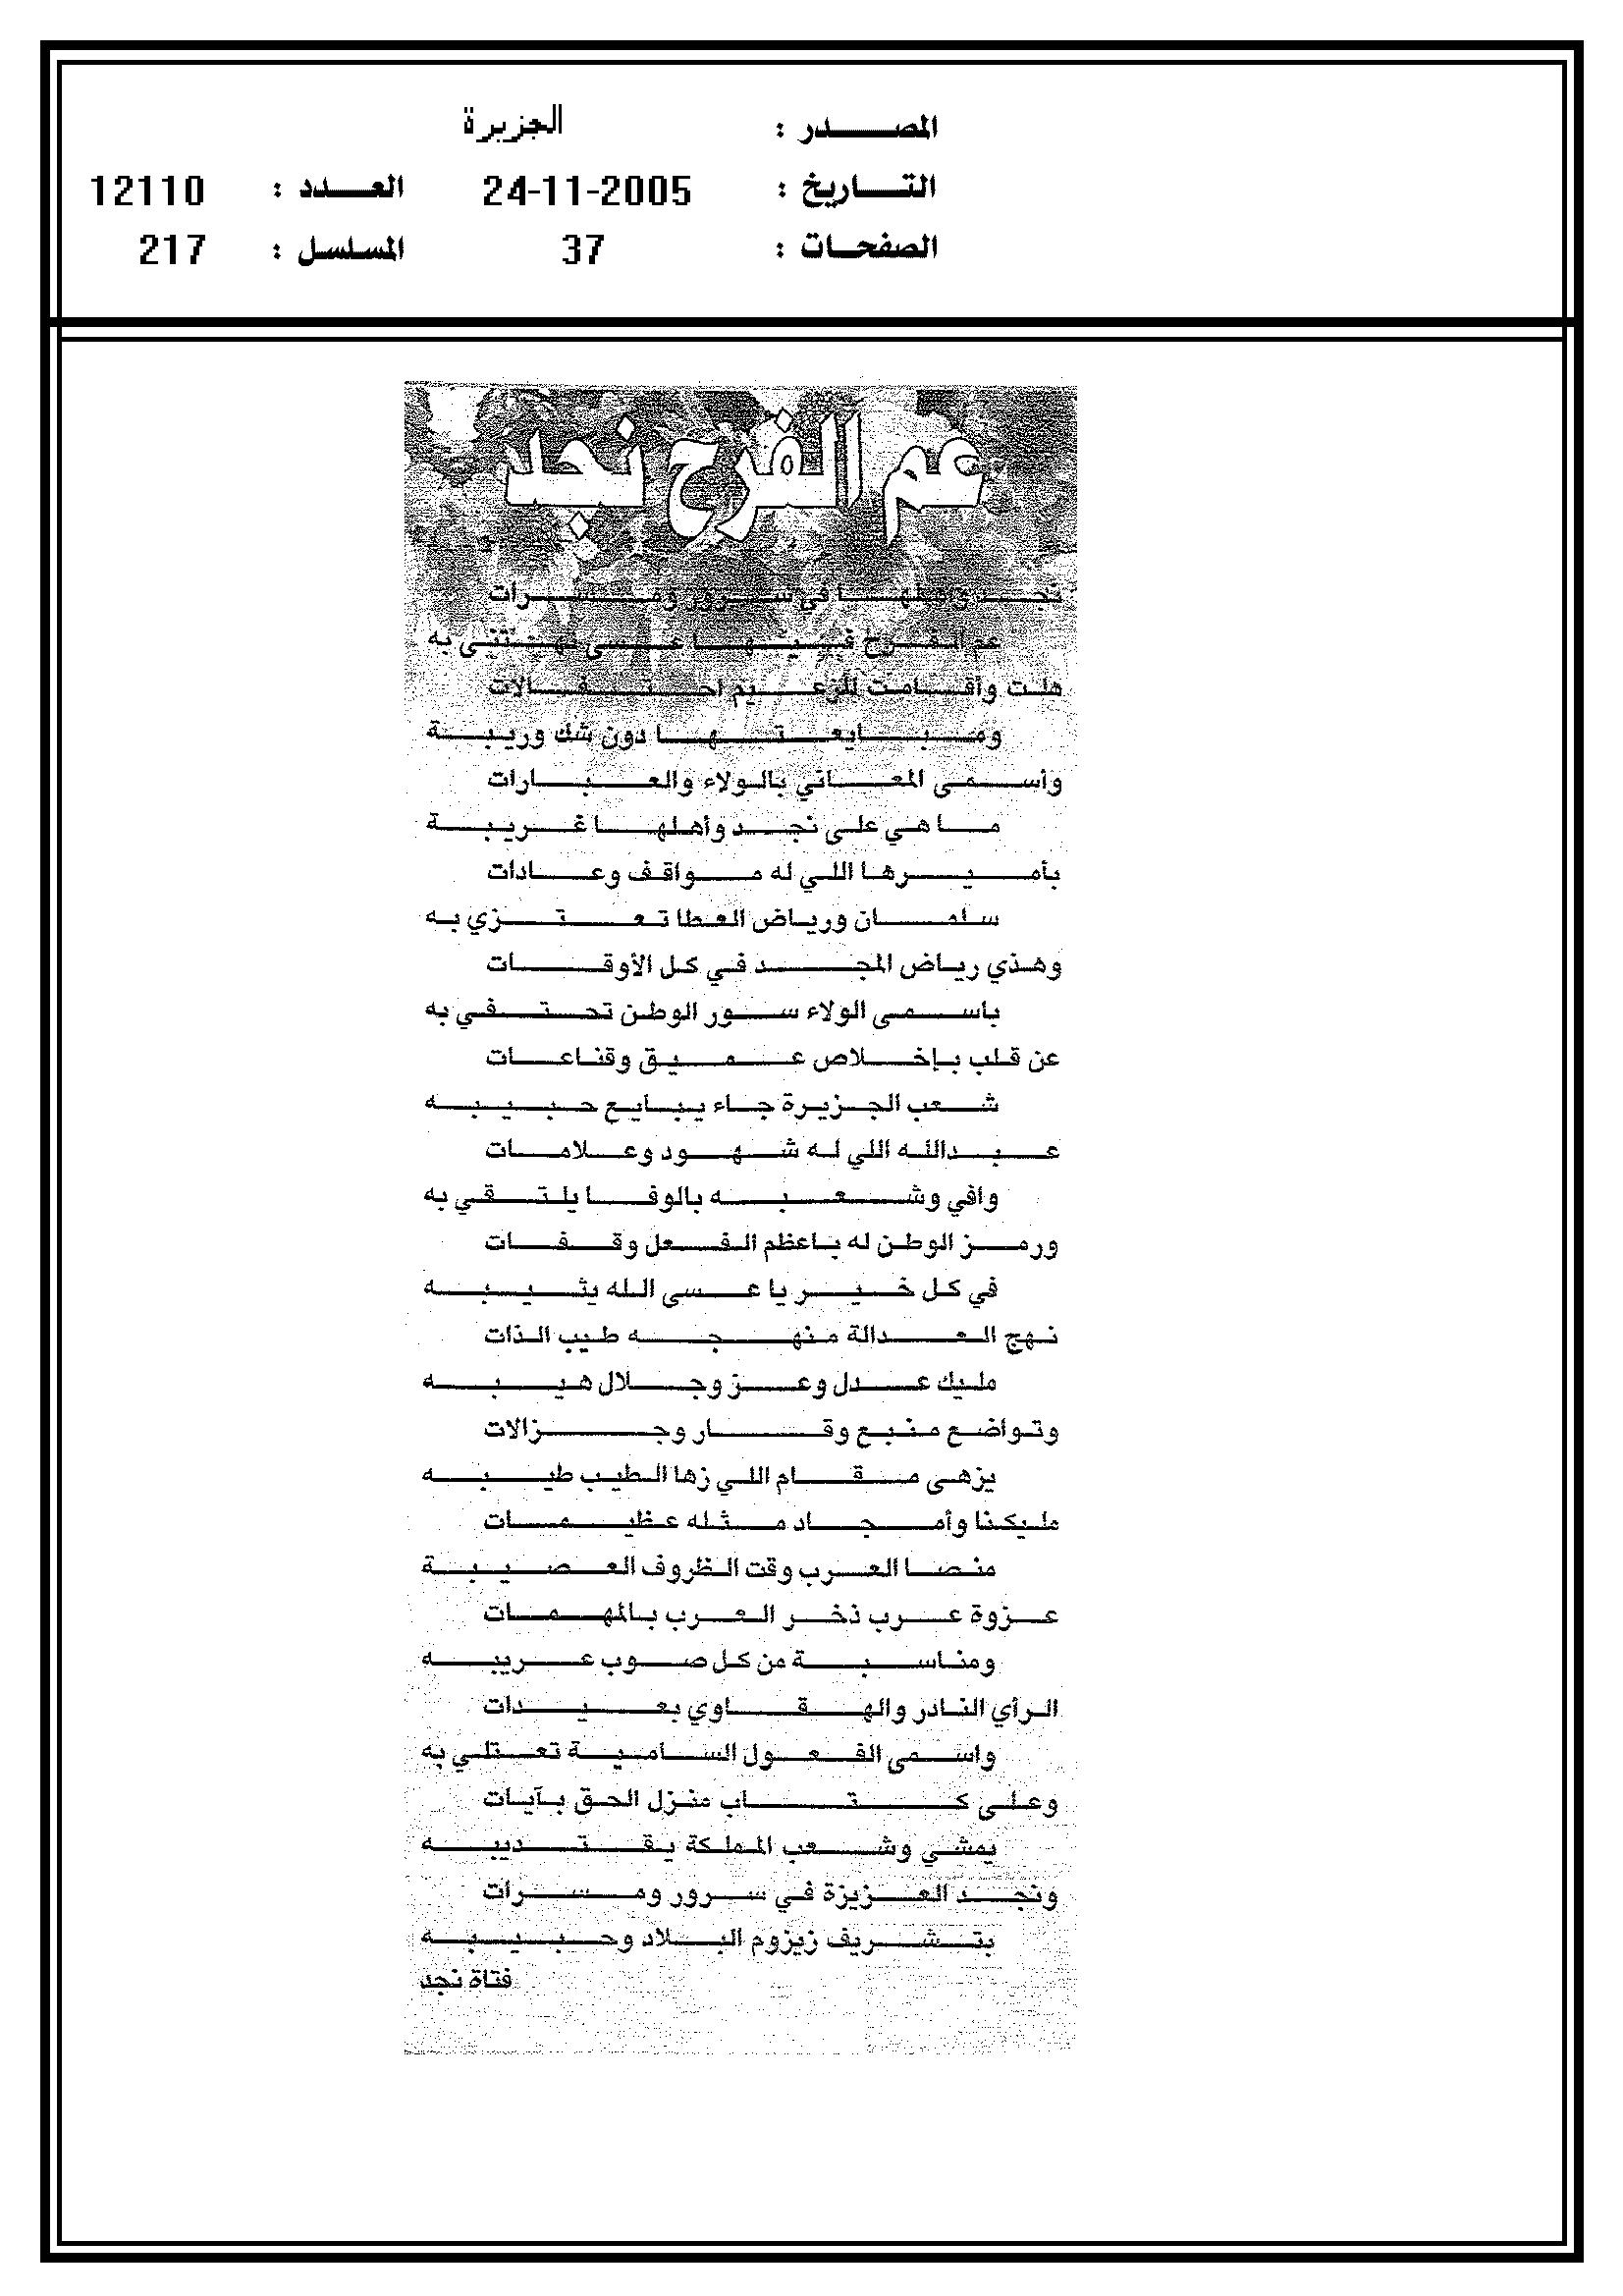 المصدر : الجزيرة
التاريخ : 24-11-2005 العدد : 12110
الصفحات : 37 المسلسل : 217
عم الفرح نجد
نجد وأهلها في سرور ومسرات
عم الفرح فيها عسى تهتني به
هلت وأقامت للزعيم احتفالات
ومبايعتها دون شك وريبة
وأسمى المعاني بالولاء والعبارات
ما هي على نجد وأهلها غريبة
بأميرها اللي له مواقف وعادات
سلمان ورياض العطا تعتزي به
وهذي رياض المجد في كل الأوقات
باسمى الولاء سور الوطن تحتفي به
عن قلب بإخلاص عميق وقناعات
شعب الجزيرة جاء يبايع حبيبه
عبدالله اللي له شهود وعلامات
وافي وشعبه بالوفا يلتقي به
ورمز الوطن له باعظم الفعل وقفات
في كل خير يا عسى الله يثيبه
نهج العدالة منهجه طيب الذات
مليك عدل وعز وجلال هيبه
وتواضع منبع وقار وجزالات
يزهى مقام اللي زها الطيب طيبه
مليكنا وأمجاد مثله عظيمات
منصا العرب وقت الظروف العصيبة
عزوة عرب ذخر العرب بالمهمات
ومناسبة من كل صوب عريبه
الرأي النادر والهقاوي بعيدات
واسمى الفعول السامية تعتلي به
وعلى كتاب منزل الحق بآيات
يمشي وشعب المملكة يقتديبه
ونجد العزيزة في سرور ومسرات
بتشريف زيزوم البلاد وحبيبه
فتاة نجد